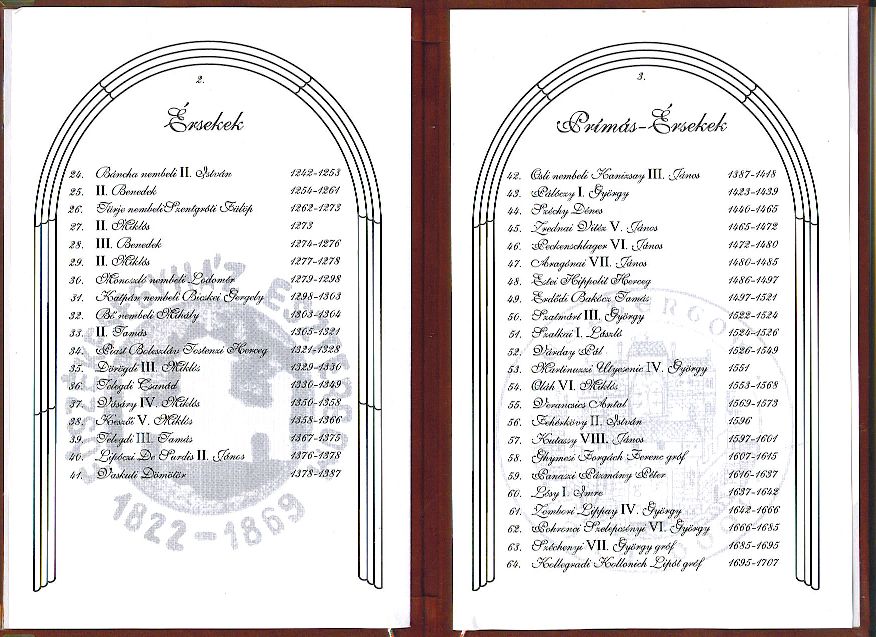 2.
Érsekek
24. Báncha nembeli II. István 1242-1253
25. II. Benedek 1254-1261
26. Türje nembeli Szentgróti Fülöp 1262-1273
27. II. Miklós 1273
28. III. Benedek 1274-1276
29. II. Miklós 1277-1278
30. Monoszló nembeli Lodomér 1279-1298
31. Katpán nembeli Bicskei Gergely 1298-1303
32. Bő nembeli Mihály 1303-1304
33. II. Tamás 1305-1321
34. Piast Boleszláv Tostenzi Herceg 1321-1328
35. Dörögdi III. Miklós 1329-1330
36. Telegdi Csanád 1330-1349
37. Vásáry IV. Miklós 1350-1358
38. Keszői V. Miklós 1358-1366
39. Telegdi III. Tamás 1367-1375
40. Lipóczi De Surdis II. János 1376-1378
41. Vaskuti Dömötör 1378-1387
1822-1869
3.
Prímás-Érsekek
42. Osli nembeli Kanizsay III. János 1387-1418
43. Pálóczy I. György 1423-1439
44. Széchy Dénes 1440-1465
45. Zrednai Vitéz V. János 1465-1472
46. Peckenschlager VI. János 1472-1480
47. Aragónai VII. János 1480-1485
48. Estei Hippolit Herceg 1486-1497
49. Erdődi Bakócz Tamás 1497-1521
50. Szatmári III. György 1522-1524
51. Szalkai I. László 1524-1526
52. Várday Pál 1526-1549
53. Martinuzzi Utyesenic IV. György 1551
54. Oláh VI. Miklós 1553-1568
55. Verancsics Antal 1569-1573
56. Fehérkövy II. István 1596
57. Kutassy VIII. János 1597-1601
58. Ghymesi Forgách Ferenc gróf 1607-1615
59. Panaszi Pázmány Péter 1616-1637
60. Lósy I. Imre 1637-1642
61. Zombori Lippay IV. György 1642-1666
62. Pohronci Szelepcsényi VI. György 1666-1685
63. Széchenyi VII. György gróf 1685-1695
64. Kollegradi Kollonich Lipót gróf 1695-1707